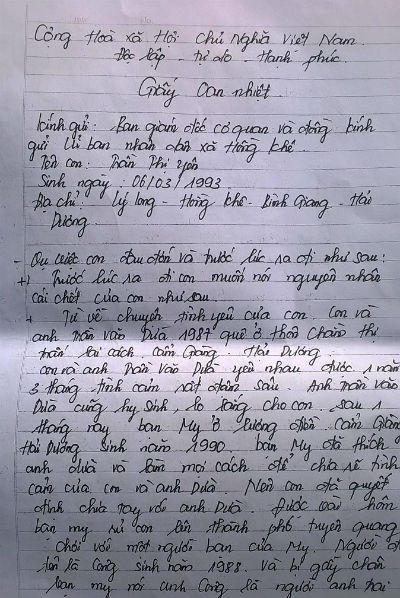 Cộng Hoà xã Hội Chủ Nghĩa Việt Nam.
Độc lập - tự do - Hạnh phúc
Giấy Oan nhiệt
Kính gửi: Ban giám đốc cơ quan và đồng kính
gửi Uỷ ban nhân dân xã Hồng Khê.
Tên con: Trần Thị Yến
Sinh ngày: 06/03/1993
Địa chỉ: Lý Long - Hồng Khê - Bình Giang - Hải
Dương
- Qu việc con đau đớn và trước lúc ra đi như sau:
+) Trước lúc ra đi con muốn nói nguyên nhân
cái chết của con như sau.
+ Tự về chuyện tình yêu của con. Con và
anh Trần văn Duà 1987 quê ở thôn Chằm thị
trấn lai cách. Cẩm Giàng. Hải Dương.
con và anh Trần văn Duà yêu nhau được 1 năm
3 tháng tình cảm rất đậm sâu. Anh Trần văn
Duà cũng hy sinh, lo lắng cho con. sau 1
tháng nay bạn My ở lương điền. Cẩm Giàng
Hải Dương sinh năm 1990. bạn My đã thích
anh duà và làm mọi cách để chia sẽ tình
cảm của con và anh Duà. Nên con đã quyết
định chia tay với anh Duà. được vài hôm
bạn my rủ con lên thành phố tuyên quang
chơi với một người bạn của My. Người đó
tên là Công sinh năm 1988. Và bị gãy chân
bạn my nói anh Công là người anh trai